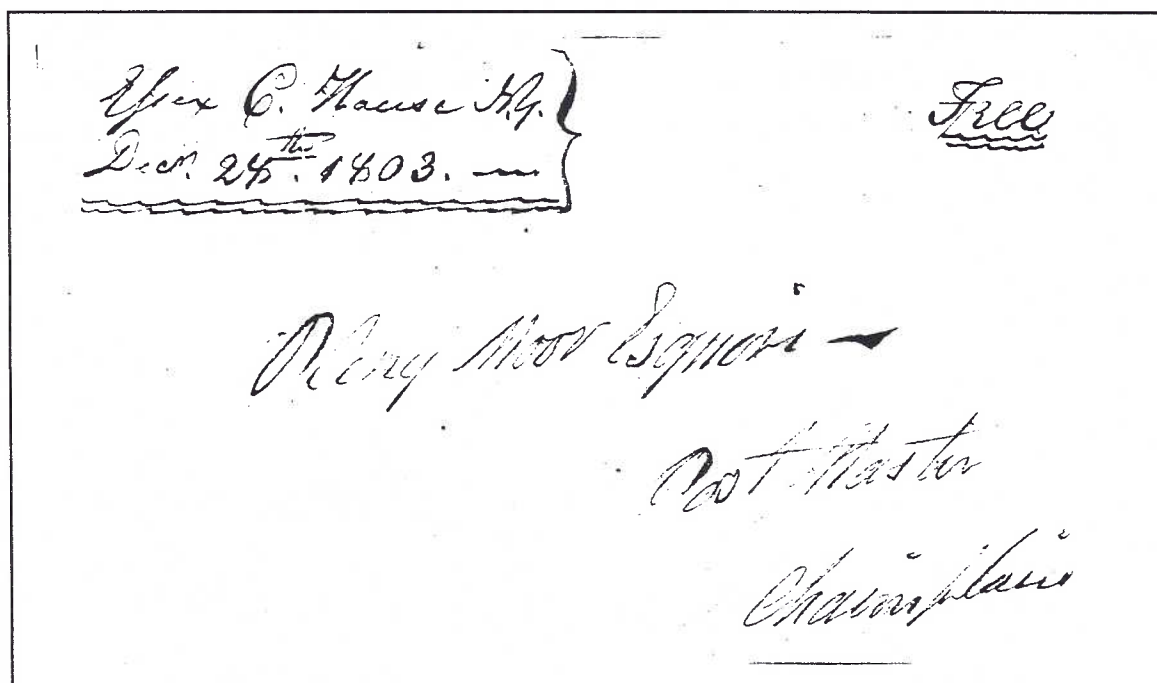 Essex C. House N.Y.
Decr. 28th. 1803. —
Free
Pliny Moor Esquire —
Post Master
Champlain